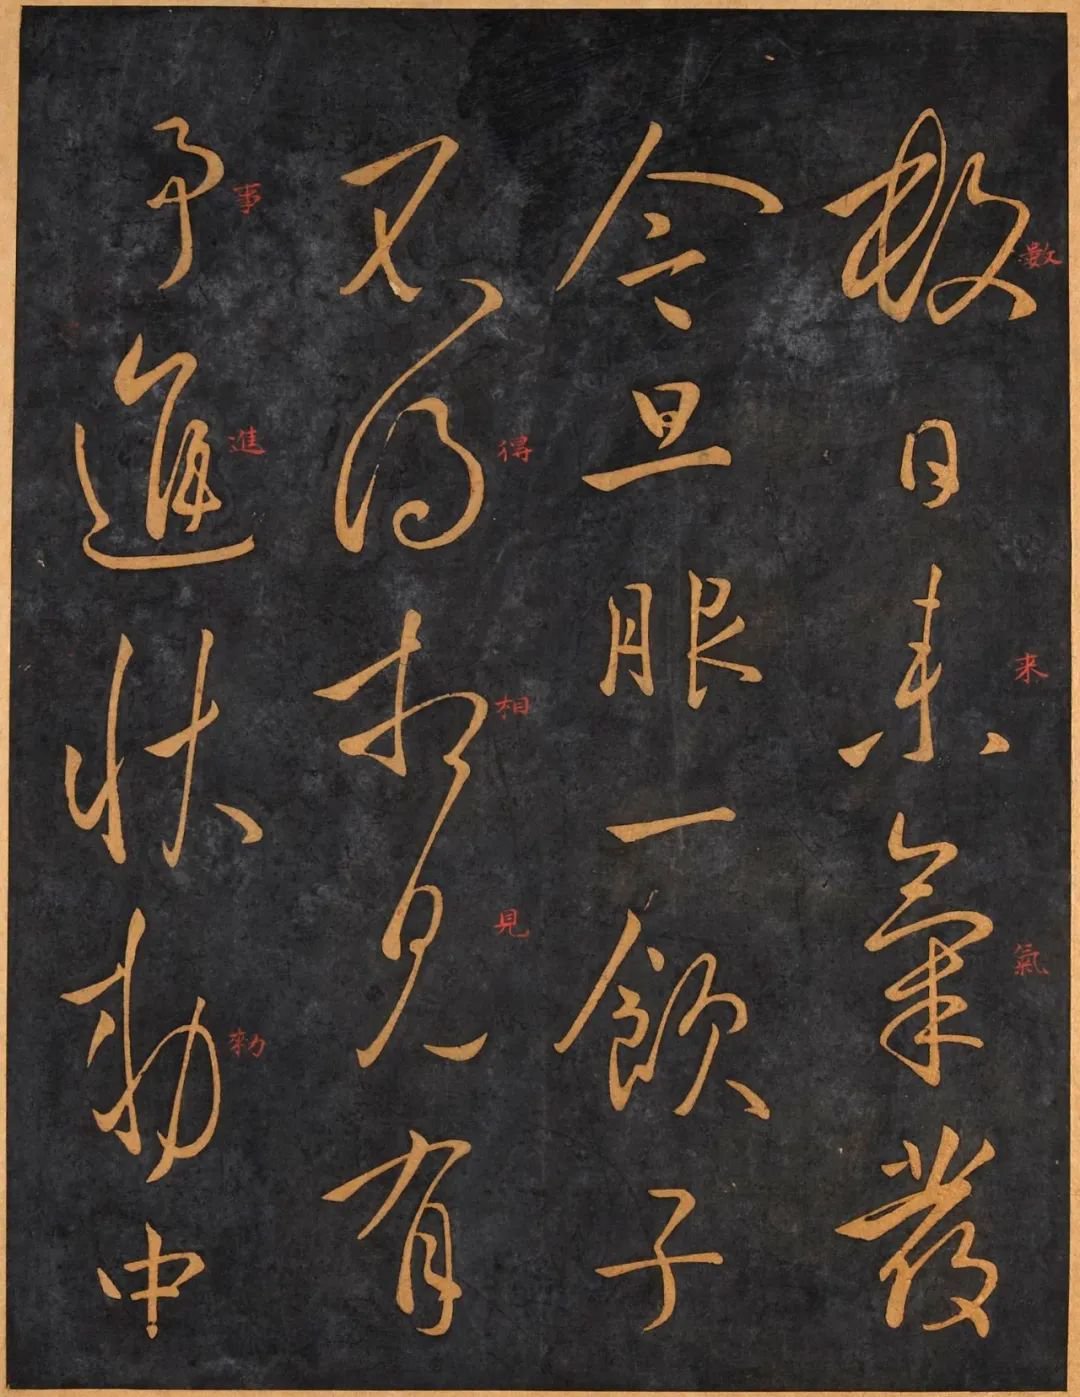 數日來氣發
數
来
氣
今旦服一飲子
不得相見有
得
相
見
事進狀勑中
事
進
勑